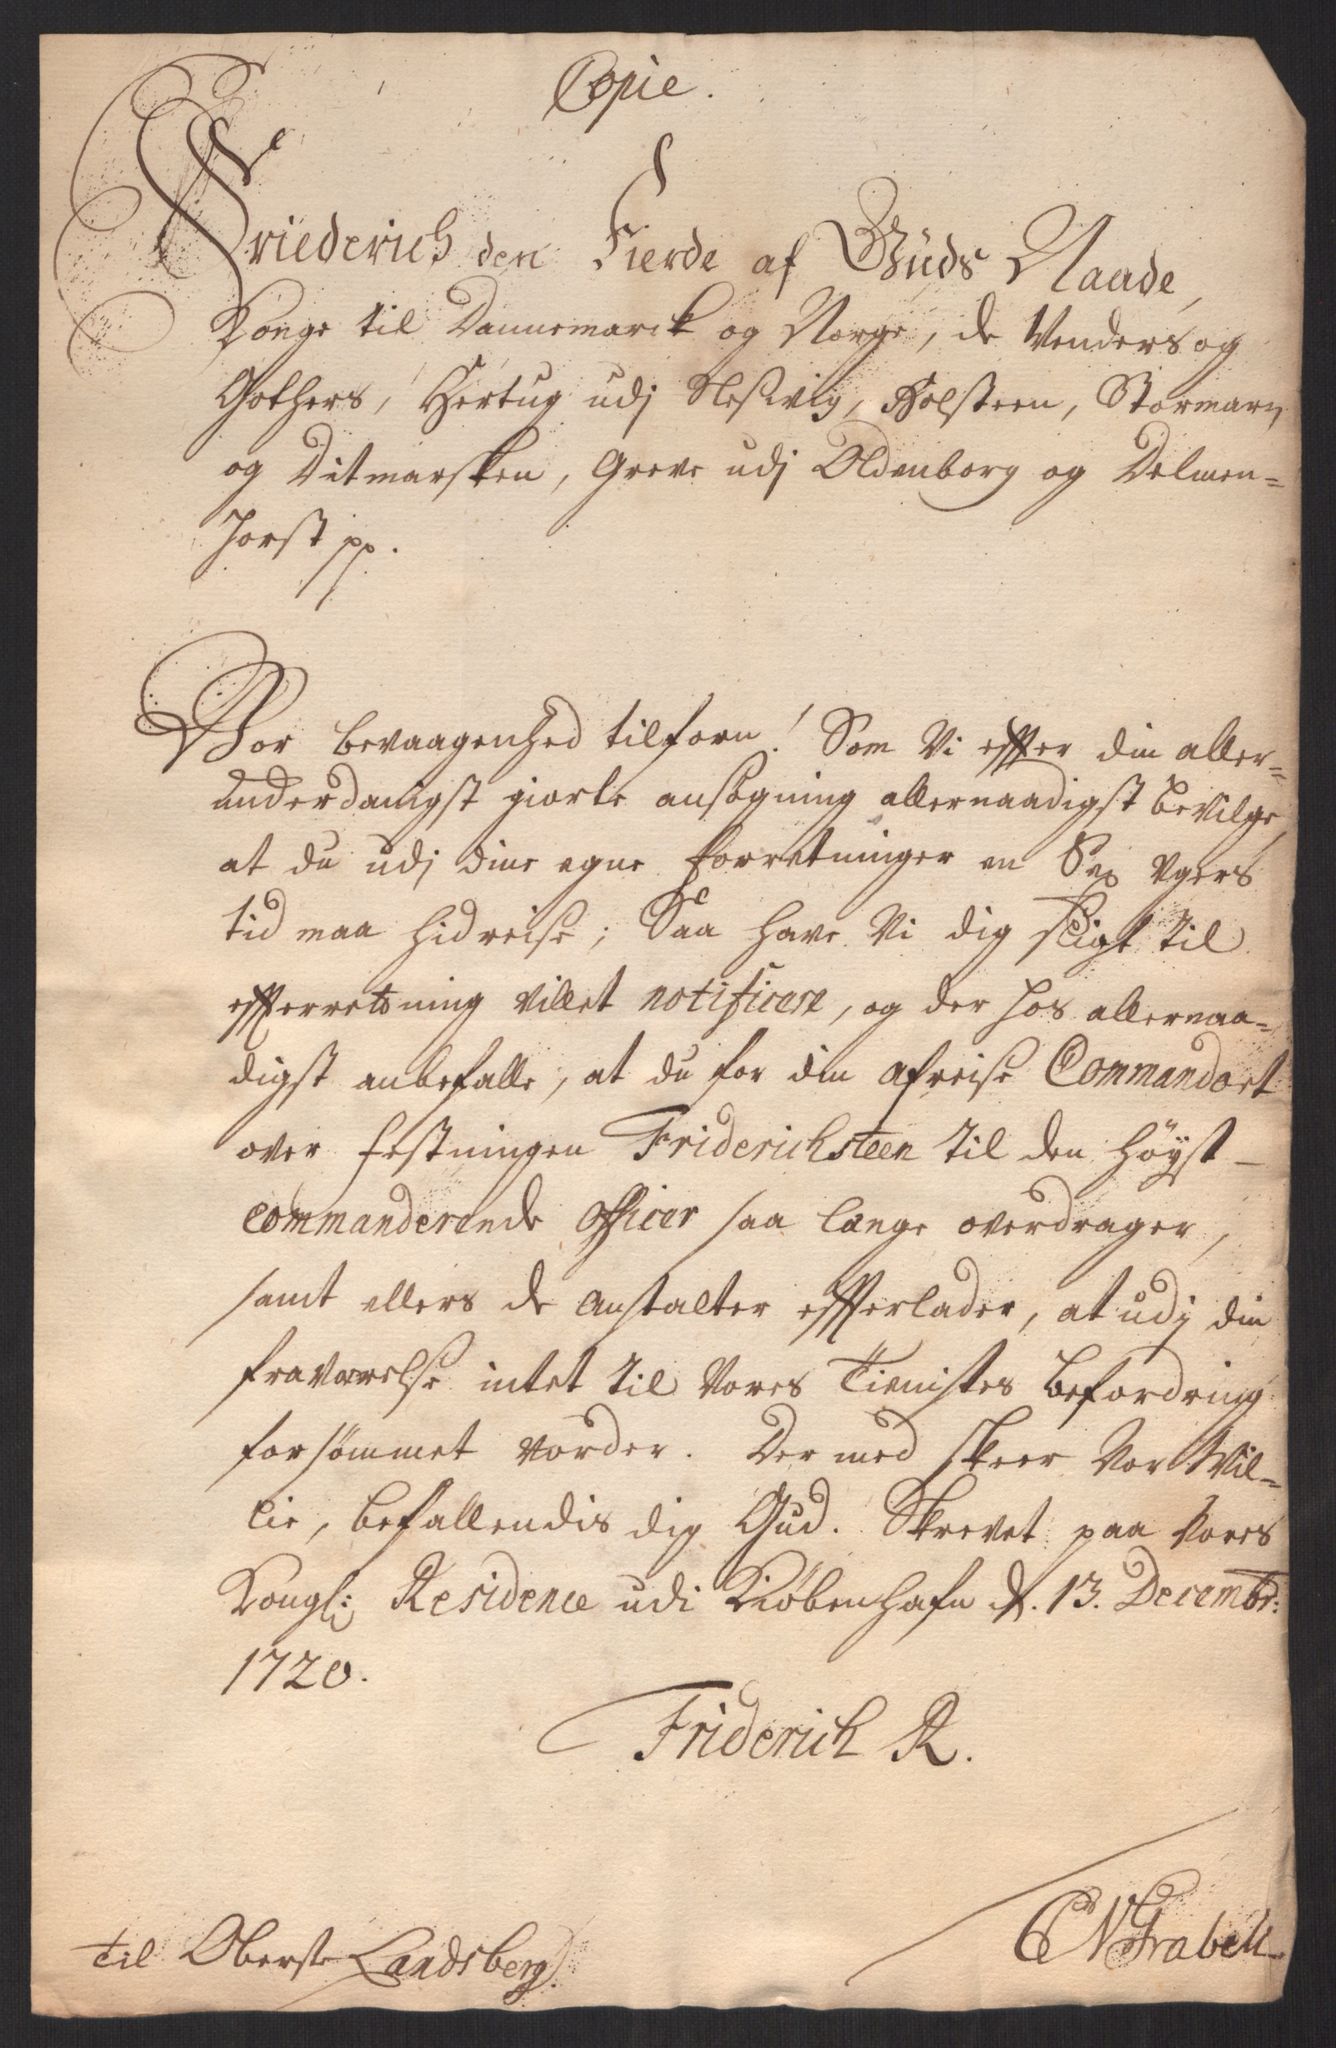 Copie.
Friederich den Fierde af Guds Naade,
Konge til Dannemarck og Norge, de Venders og
Gothers, Hertug udj Slesvig, Holsteen, Stormarn
og Ditmarsken, Greve udj Oldenborg og Delmen=
horst pp.
Vor bevaagenhed tilforn! Som Vi effter din aller=
underdanigst giorte ansögning allernaadigst bevilge,
at du udj dine egne forretninger en Sex Ugers
tid maa hidreise; Saa have Vi dig sligt til
effterretning villet notificere, og der hos allernaa=
digst anbefalle, at du for din afreise Commandoet
over festningen Friderichsteen til den höyst-
commanderende officer saa længe overdrager,
samt ellers de anstalter effterlader, at udj din
fraværelse intet til Vores Tienistes befordring
forsømmet vorder. Der med skeer Vor Wil=
lie, befallendis dig Gud. Skrevet paa Vores
Kongl: Residence udi Kiøbenhafn d. 13. Decembr:
1720.
Friderich R.
CN Frabell
Til Oberste Landsberg.